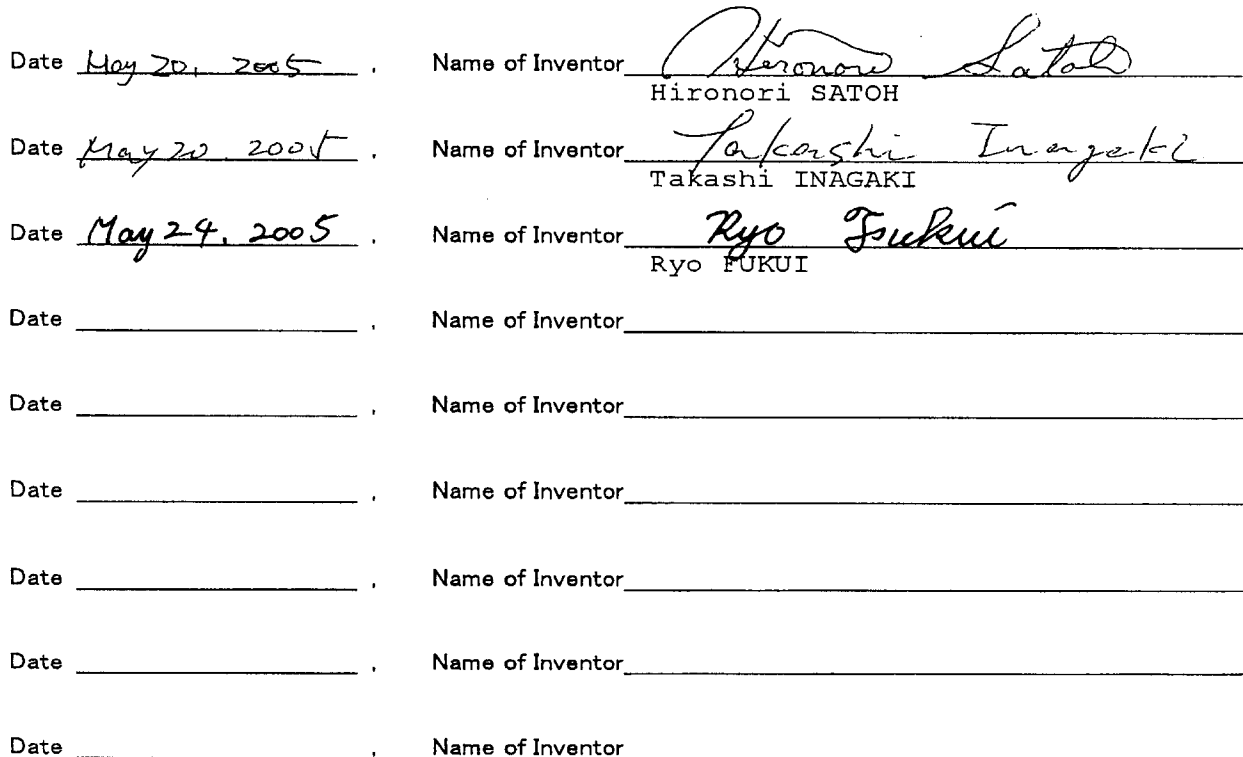 Date May 20, 2005 , Name of Inventor Hironori Satoh
Hironori SATOH
Date May 20. 2005 , Name of Inventor Takashi Inagaki
Takashi INAGAKI
Date May 24. 2005 , Name of Inventor Ryo Fukui
Ryo FUKUI
Date , Name of Inventor
Date , Name of Inventor
Date , Name of Inventor
Date , Name of Inventor
Date , Name of Inventor
Date , Name of Inventor